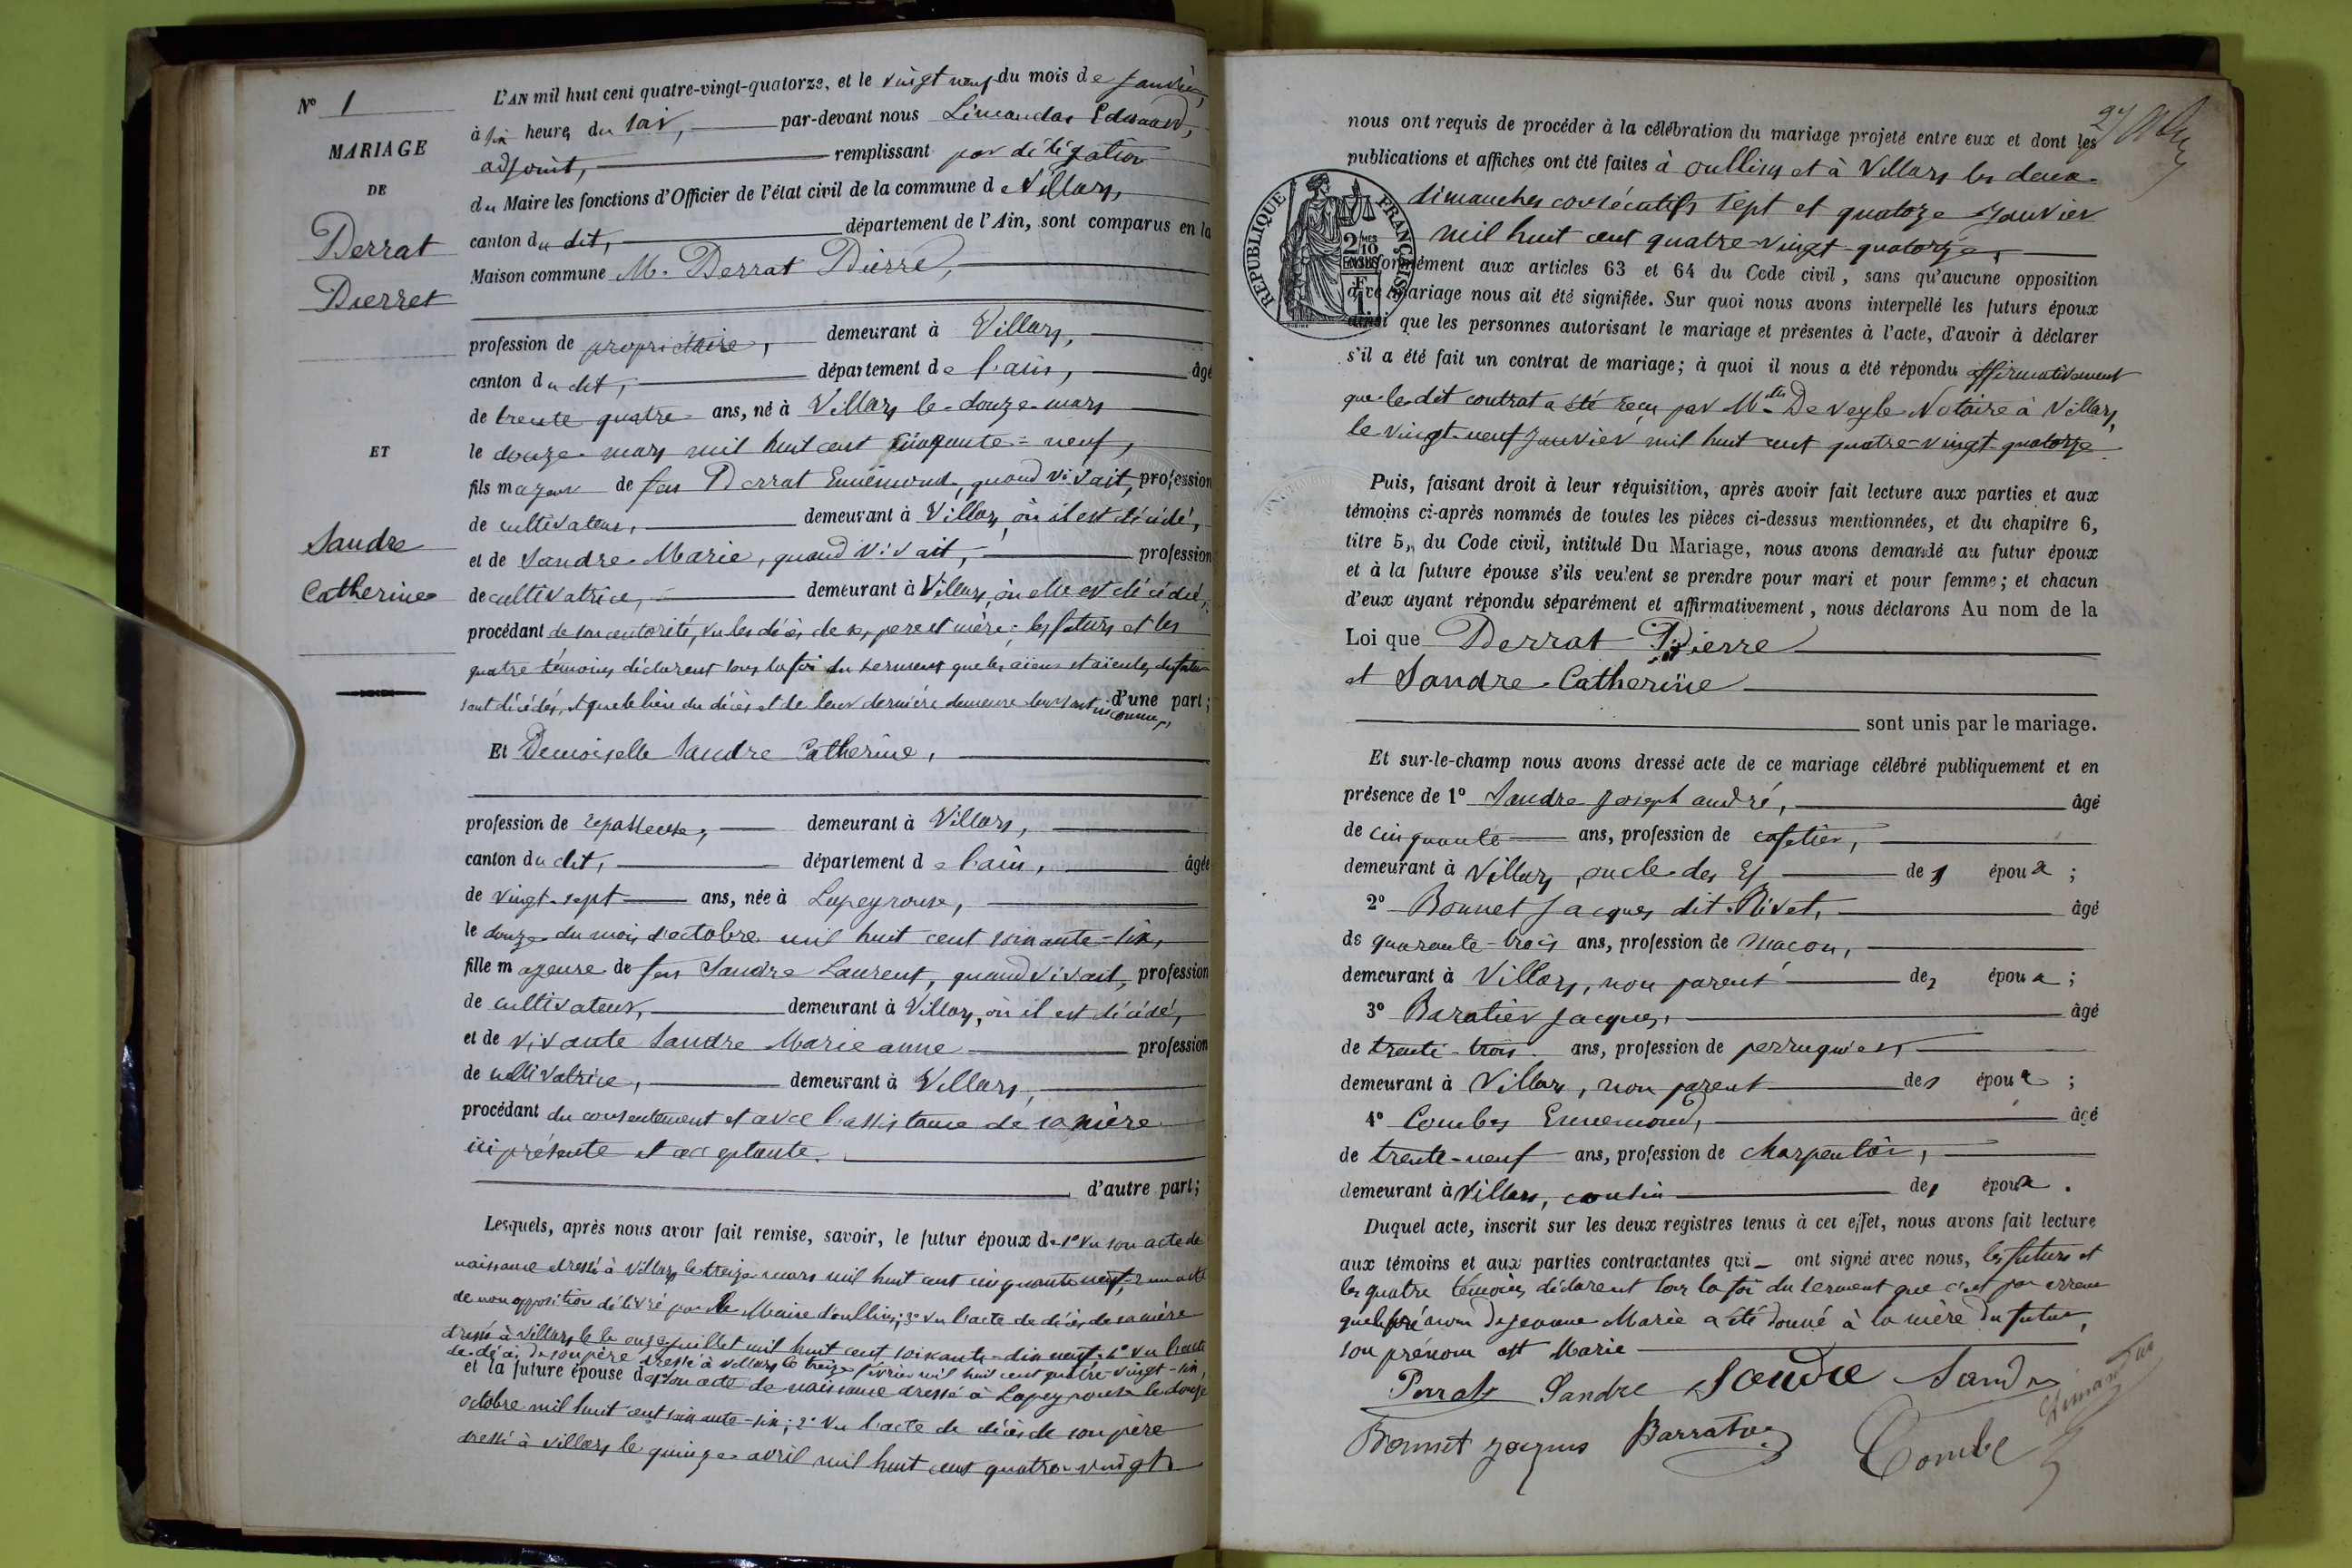 N° 1
MARIAGE
DE
Perrat
Pierre
ET
Sandre
Catherine
L'AN mil huit cent quatre-vingt-quatorze, et le vingt neuf du mois de janvier,
à six heures du soir, par-devant nous Limandas Edouard,
adjoint, remplissant par délégation
du Maire les fonctions d'Officier de l'état civil de la commune de Villars,
canton du dit, département de l'Ain, sont comparus en la
Maison commune M. Perrat Pierre,
profession de propriétaire, demeurant à Villars,
canton du dit, département de l'ain, âgé
de trente quatre ans, né à Villars le douze mars
le douze mars mil huit cent cinquante-neuf,
fils majeur de feu Perrat Ennemond, quand vivait, profession
de cultivateur, demeurant à Villars, où il est décédé,
et de Sandre Marie, quand vivait, profession
de cultivatrice, demeurant à Villars, où elle est décédée,
procédant de son autorité, vu les décès de ses père et mère : les futurs et les
quatre témoins déclarent sous la foi du serment que les aïeux et aïeules du futur
sont décédés, et que le lieu du décès et de leur dernière demeure leur sont inconnus, d'une part;
Et Demoiselle Sandre Catherine,
profession de repasseuse, demeurant à Villars,
canton du dit, département de l'ain, âgée
de vingt-sept ans, née à Lapeyrouse,
le douze du mois d'octobre mil huit cent soixante-six,
fille majeure de feu Sandre Laurent, quand vivait, profession
de cultivateur, demeurant à Villars, où il est décédé,
et de vivante Sandre Marie anne profession
de cultivatrice, demeurant à Villars,
procédant du consentement et avec l'assistance de sa mère
ici présente et acceptante.
d'autre part;
Lesquels, après nous avoir fait remise, savoir, le futur époux de 1° vu son acte de
naissance dressé à Villars le treize mars mil huit cent cinquante neuf, 2° un acte
de non opposition délivré par le Maire d'oullins; 3° vu l'acte de décès de sa mère
dressé à Villars le le onze juillet mil huit cent soixante-dix neuf. 4° vu l'acte
de décès de son père dressé à Villars le treize février mil huit cent quatre-vingt-six,
et la future épouse de 1° son acte de naissance dressé à Lapeyrouse le douze
octobre mil huit cent soixante-six; 2° vu l'acte de décès de son père
dressé à Villars le quinze avril mil huit cent quatre-vingt
nous ont requis de procéder à la célébration du mariage projeté entre eux et dont les
publications et affiches ont été faites à oullins et à Villars les deux
dimanches consécutifs sept et quatorze janvier
mil huit cent quatre-vingt quatorze,
RÉPUBLIQUE FRANÇAISE
2/10
EN SUS
conformément aux articles 63 et 64 du Code civil, sans qu'aucune opposition
à ce mariage nous ait été signifiée. Sur quoi nous avons interpellé les futurs époux
ainsi que les personnes autorisant le mariage et présentes à l'acte, d'avoir à déclarer
s'il a été fait un contrat de mariage; à quoi il nous a été répondu affirmativement
que le dit contrat a été reçu par Mtre De veyle Notaire à Villars,
le vingt-neuf janvier mil huit cent quatre-vingt-quatorze
Puis, faisant droit à leur réquisition, après avoir fait lecture aux parties et aux
témoins ci-après nommés de toutes les pièces ci-dessus mentionnées, et du chapitre 6,
titre 5, du Code civil, intitulé Du Mariage, nous avons demandé au futur époux
et à la future épouse s'ils veulent se prendre pour mari et pour femme; et chacun
d'eux ayant répondu séparément et affirmativement, nous déclarons Au nom de la
Loi que Perrat Pierre
et Sandre Catherine
sont unis par le mariage.
Et sur-le-champ nous avons dressé acte de ce mariage célébré publiquement et en
présence de 1° Sandre Joseph andré, âgé
de cinquante ans, profession de cafetier,
demeurant à Villars, oncle des époux;
2° Bonnet Jacques dit Rivet, âgé
de quarante-trois ans, profession de maçon,
demeurant à Villars, non parent des époux;
3° Baratier Jacques, âgé
de trente-trois ans, profession de perruquier,
demeurant à Villars, non parent des époux;
4° Combes Ennemond, âgé
de trente-neuf ans, profession de charpentier,
demeurant à Villars, cousin des époux.
Duquel acte, inscrit sur les deux registres tenus à cet effet, nous avons fait lecture
aux témoins et aux parties contractantes qui ont signé avec nous, les futurs et
les quatre témoins déclarent sous la foi du serment que c'est par erreur
que le prénom de jeanne Marie a été donné à la mère du futur,
son prénom est Marie
Perrat Sandre Sandre Sandre Limandas
Bonnet jacques Barratier Combe